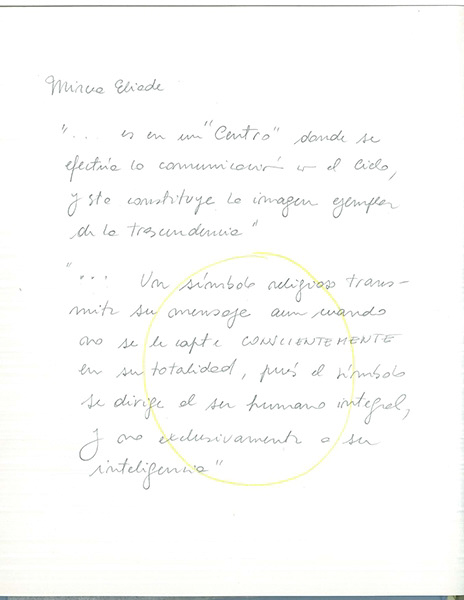 Mircea Eliade
"... es en un "Centro" donde se
efectúa la comunicación c/ el Cielo,
y ste constituye la imagen ejemplar
de la trascendencia"
"... Un símbolo religioso trans-
mite su mensaje aun cuando
no se le capte CONSCIENTEMENTE
en su totalidad, pués el símbolo
se dirige al ser humano integral,
y no exclusivamente a su
inteligencia"